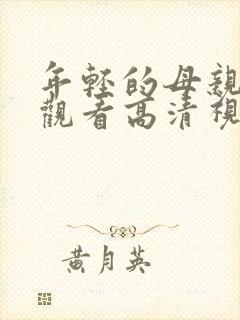 年轻的母亲
观看高清视
黄月英